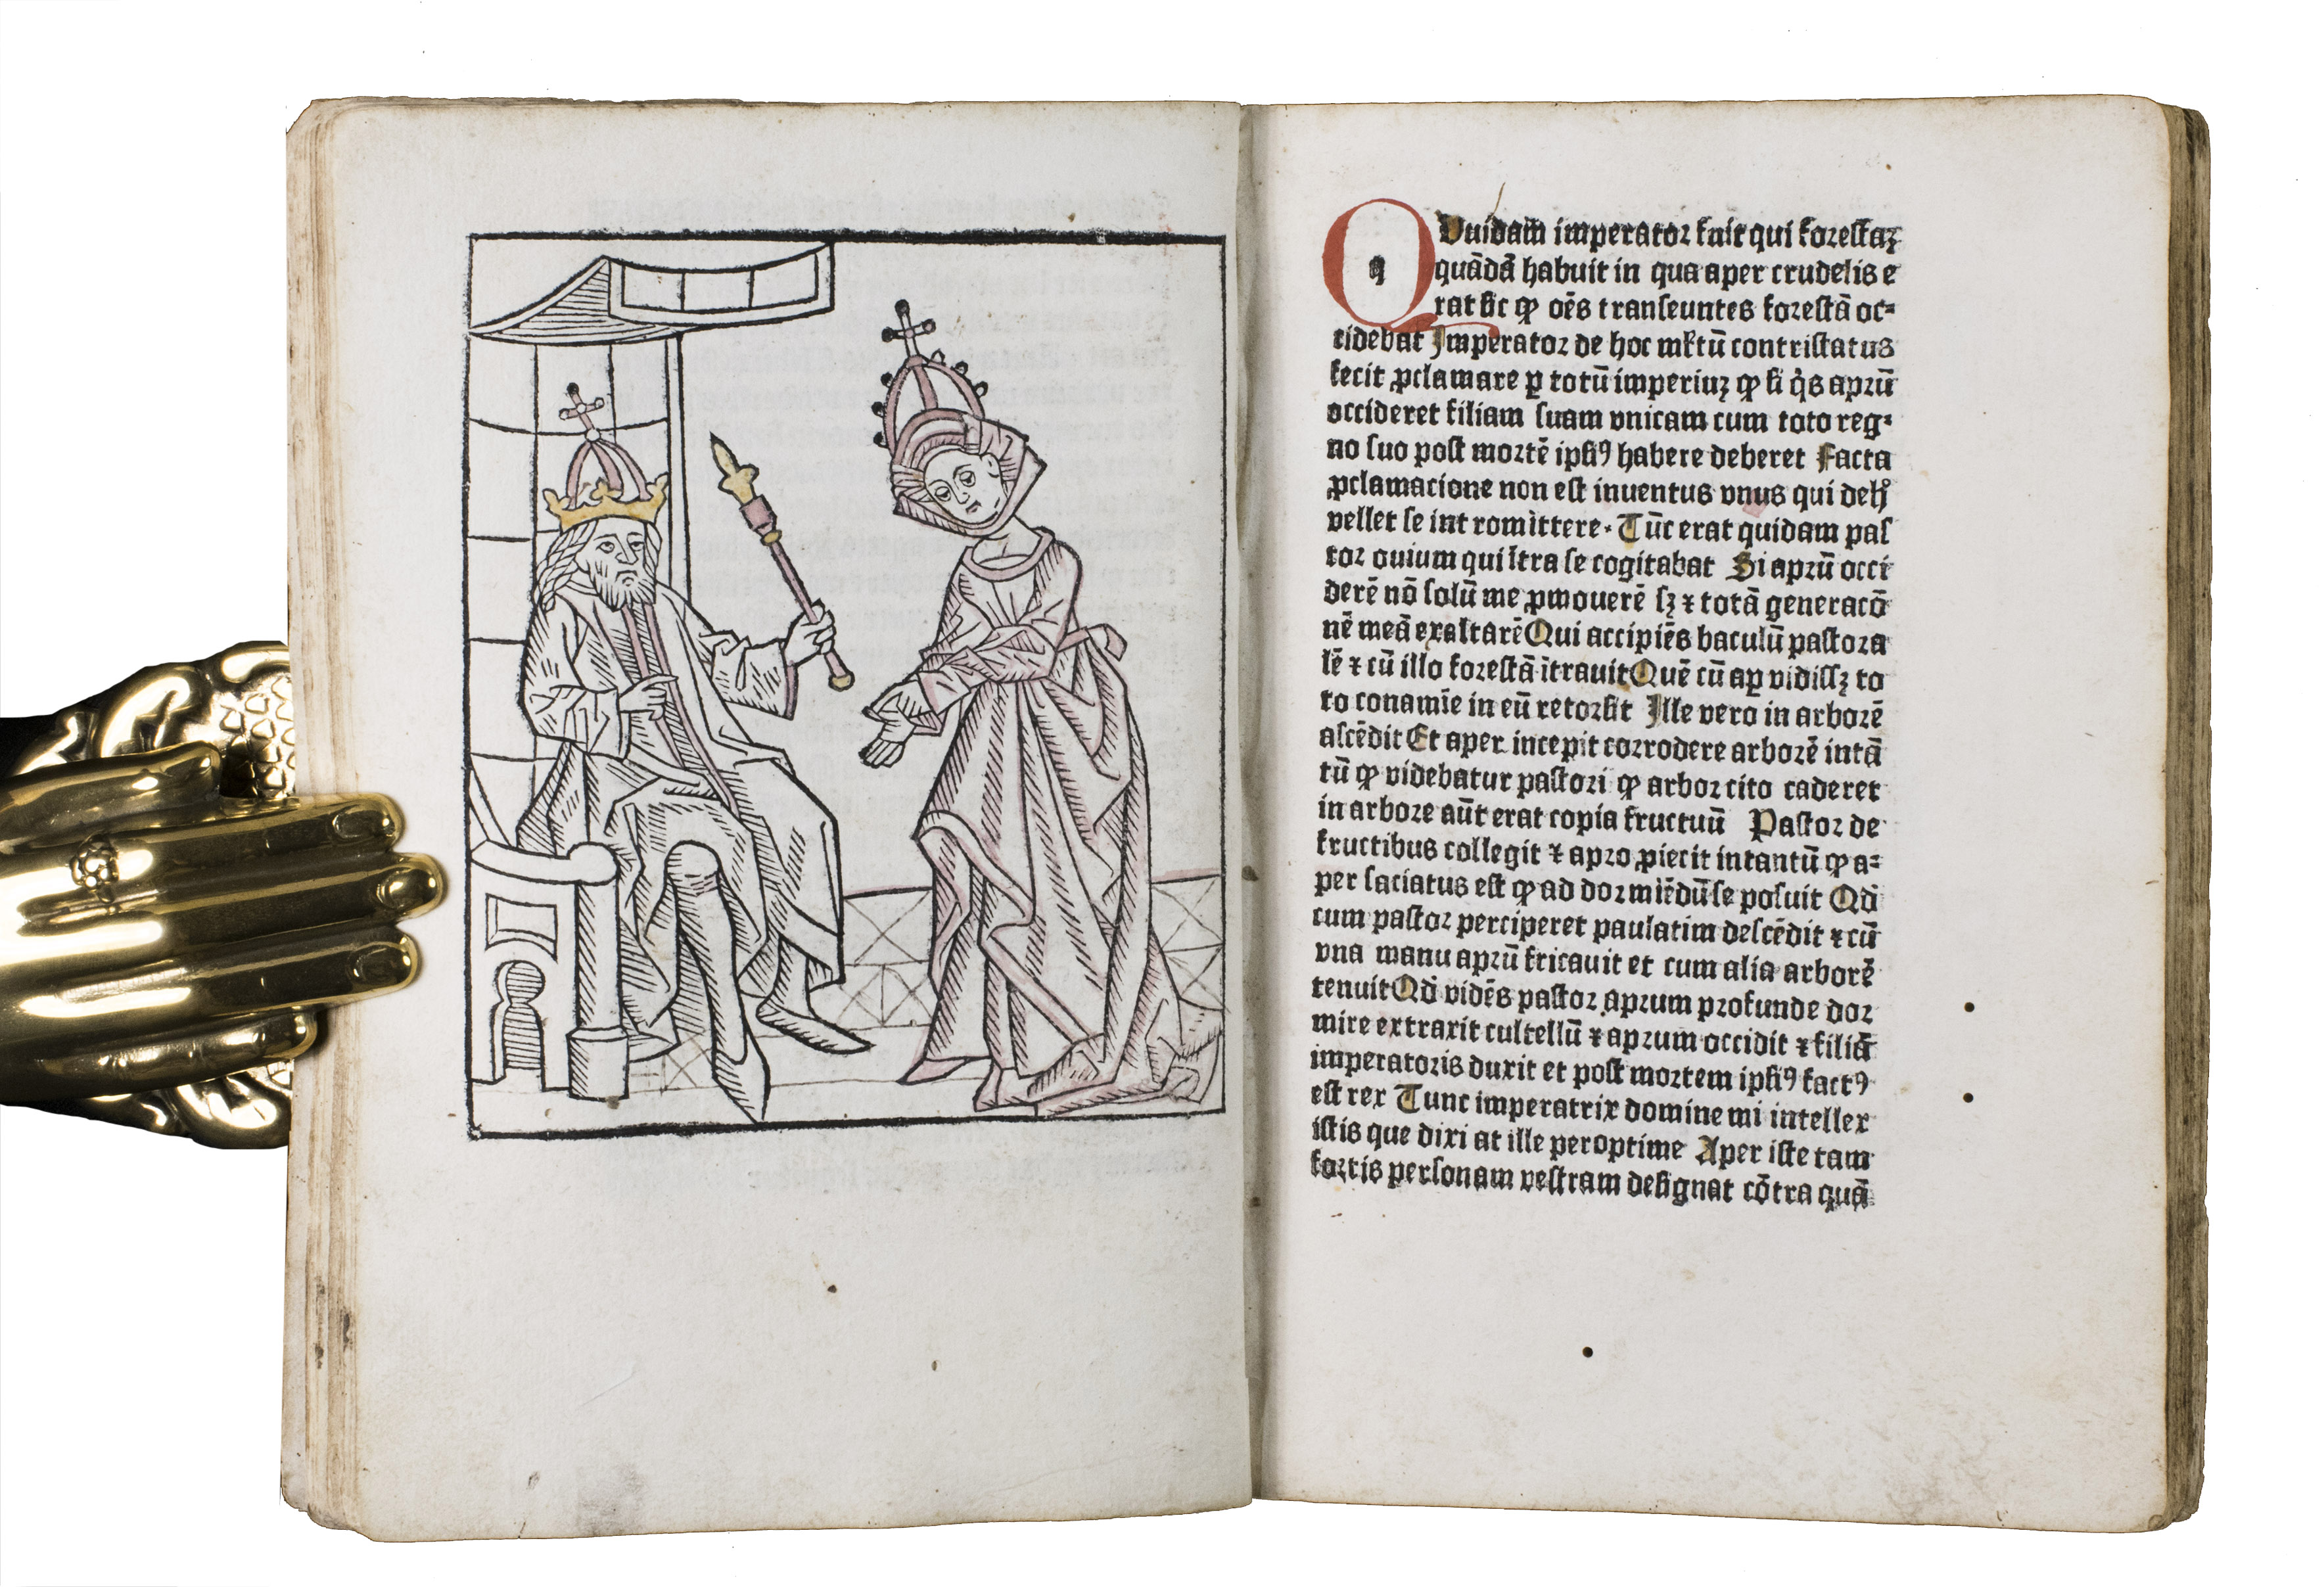 Q
q
Vuidam imperator fuit qui forestaꝫ
quādā habuit in qua aper crudelis e
rat sic ꝙ oēs transeuntes forestā oc⸗
cidebat Imperator de hoc mk̄tū contristatus
fecit ꝓclamare ꝑ totū imperiuꝫ ꝙ si q̇s aprū
occideret filiam suam vnicam cum toto reg⸗
no suo post mortē ipsiꝰ habere deberet Facta
ꝓclamacione non est inuentus vnus qui deh̊
vellet se int romittere· Tūc erat quidam pas
tor ouium qui ītra se cogitabat Si aprū occi
derē nō solū me ꝓmouerē sꝫ ⁊ totā generacō
nē meā exaltarē Qui accipiēs baculū pastora
lē ⁊ cū illo forestā ītrauit Quē cū aꝑ vidissꝫ to
to conamīe in eū retorsit Ille vero in arborē
ascēdit Et aper incepit corrodere arborē intā
tū ꝙ videbatur pastori ꝙ arbor cito caderet
in arbore aūt erat copia fructuū Pastor de
fructibus collegit ⁊ apro ꝓiecit intantū ꝙ a⸗
per saciatus est ꝙ ad dormiēdū se posuit Qd̄
cum pastor perciperet paulatim descēdit ⁊ cū
vna manu aprū fricauit et cum alia arborē
tenuit Qd̄ vidēs pastor aprum profunde dor
mire extraxit cultellū ⁊ aprum occidit ⁊ filiā
imperatoris duxit et post mortem ipsiꝰ factꝰ
est rex Tunc imperatrix domine mi intellex
istis que dixi at ille peroptime Aper iste tam
fortis personam vestram designat cōtra quā